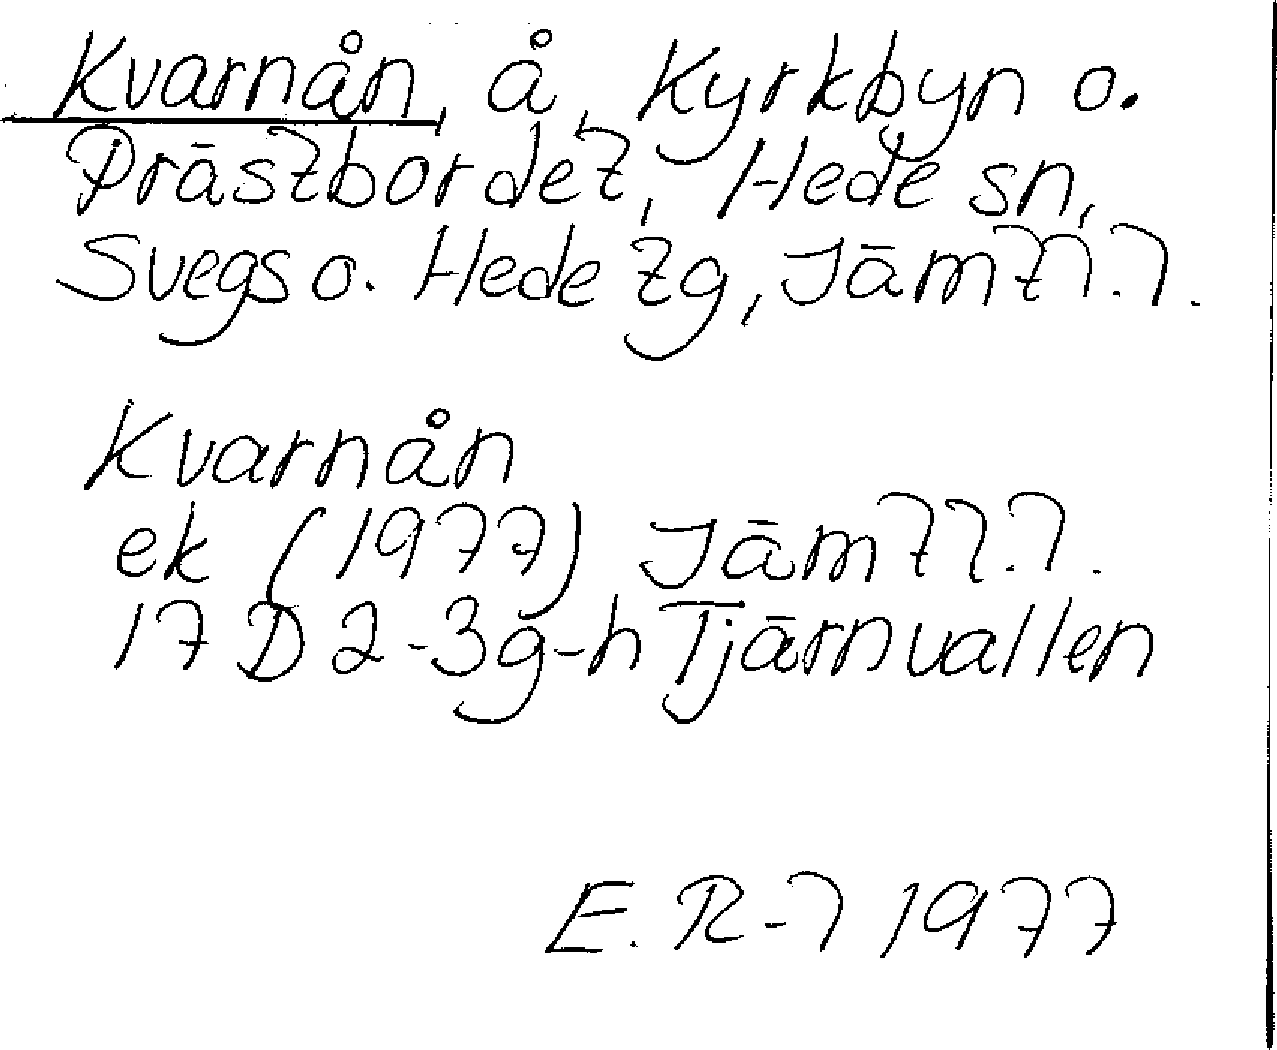 Kvarnån, å, Kyrkbyn o.
Prästbordet, Hede sn,
Svegs o. Hede tg, Jämtl.l.
Kvarnån
ek (1977) Jämtl.l.
17 D 2-3g-h Tjärnvallen
E. R-l 1977